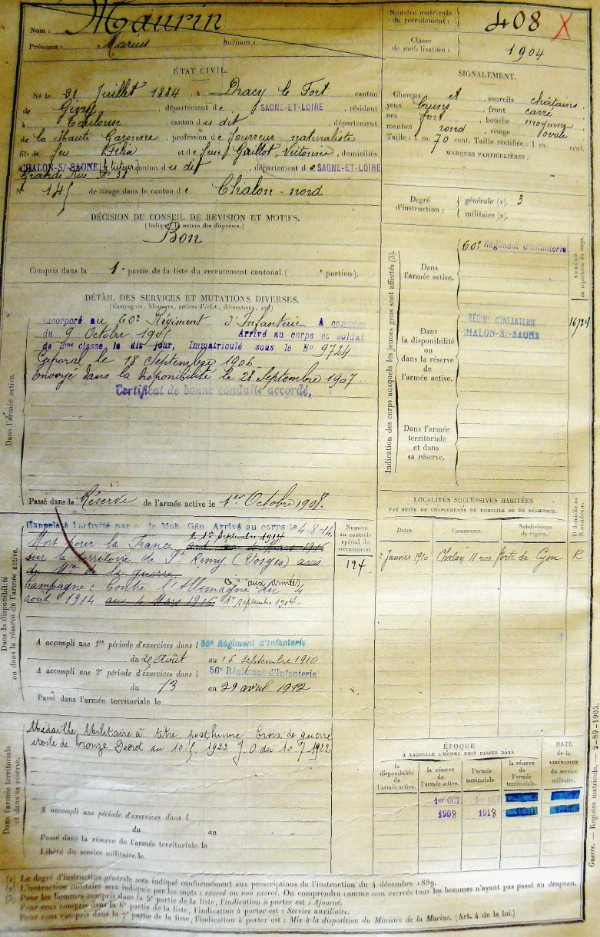 Nom : Maurin
Prénoms : Marius Surnom :
Numéro matricule du recrutement : 408 X
Classe de mobilisation : 1904
ÉTAT CIVIL.
Né le 31 Juillet 1884 à Dracy le Fort canton
de Givry, département de SAONE-ET-LOIRE, résidant
à Toulouse canton du dit, département
de la Haute Garonne, profession de fourreur naturaliste
fils de feu Félix et de feue Gaillot, Victorine, domiciliés
CHALON-S/-SAONE (tuteur) canton du dit département de SAONE-ET-LOIRE
Grande Rue N° 31
N° 145 de tirage dans le canton de Chalon-nord
SIGNALEMENT.
Cheveux et sourcils châtains
yeux front carré
nez fort, bouche moyenne
menton rond, visage ovale
Taille : 1 m. 70 cent. Taille rectifiée : 1 m. cent.
MARQUES PARTICULIÈRES :
Degré d'instruction : générale (1). 3
militaire (2).
DÉCISION DU CONSEIL DE RÉVISION ET MOTIFS.
Bon
Compris dans la 1e partie de la liste du recrutement cantonal ( e portion).
DÉTAIL DES SERVICES ET MUTATIONS DIVERSES.
(Campagnes, blessures, actions d'éclat, décorations, etc.)
Incorporé au 60e Régiment d'Infanterie À compter
du 9 Octobre 1905 Arrivé au corps et soldat
de 2ème classe, le dit jour, Immatriculé sous le No 9724
Caporal le 18 Septembre 1906
Envoyé dans la Disponibilité le 28 Septembre 1907
Certificat de bonne conduite accordé.
Passé dans la Réserve de l'armée active le 1er Octobre 1908.
Indication des corps auxquels les jeunes gens sont affectés (3).
NUMÉRO au répertoire du corps.
Dans l'armée active.
60e Régiment d'Infanterie
Dans la disponibilité ou dans la réserve de l'armée active.
RÉGIMt D'INFANTERIE
CHALON-S-SAONE
16724
Dans l'armée territoriale et dans sa réserve.
Dans l'armée active.
Dans la disponibilité ou dans la réserve de l'armée active.
Rappelé à l'activité par o. de Mob. Gén. Arrivé au corps le 4-8-14
le 1er Septembre 1914
Mort pour la France
sur le territoire de St Remy (Vosges) avis
du Mre de la guerre
Campagne : Contre l'Allemagne du 4
août 1914 au 4 Mars 1916 1er Septembre 1914
Numéro au contrôle spécial du recrutement
124
A accompli une 1re période d'exercices dans l 56e Régiment d'Infanterie
du 25 Août au 16 Septembre 1910
A accompli une 2e période d'exercices dans l 56e Régiment d'Infanterie
du 13 au 29 avril 1912
Passé dans l'armée territoriale le
LOCALITÉS SUCCESSIVES HABITÉES
PAR SUITE DE CHANGEMENTS DE DOMICILE OU DE RÉSIDENCE.
Dates Communes. Subdivisions de région. D domicile ou R résidence.
Janvier 1910 Chalon 11 rue Porte de Lyon R
Dans l'armée territoriale et dans sa réserve.
Médaille Militaire à titre posthume Croix de guerre
étoile de bronze Décret du 10.5 1922 J.O. du 10.7.1922
A accompli une période d'exercices dans l
du au
Passé dans la réserve de l'armée territoriale le
Libéré du service militaire le
ÉPOQUE
À LAQUELLE L'HOMME DOIT PASSER DANS
la disponibilité de l'armée active. la réserve de l'armée active. l'armée territoriale. la réserve de l'armée territoriale.
DATE de la LIBÉRATION du service militaire.
1er OCT. 1er OCT
1908 1918
Guerre. — Registre matricule. — 2-89-1905.
(1) Le degré d'instruction générale sera indiqué conformément aux prescriptions de l'instruction du 4 décembre 1889.
(2) L'instruction militaire sera indiquée par les mots : exercé ou non exercé. On comprendra comme non exercés tous les hommes n'ayant pas passé au drapeau.
(3) Pour les hommes compris dans la 5e partie de la liste, l'indication à porter est : Ajourné.
Pour ceux compris dans la 6e partie de la liste, l'indication à porter est : Service auxiliaire.
Pour ceux compris dans la 7e partie de la liste, l'indication à porter est : Mis à la disposition du Ministre de la Marine. (Art. 4 de la loi.)